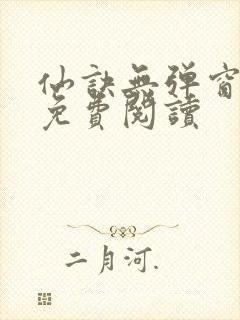 仙訣無弹窗
免費閱讀
二月河.